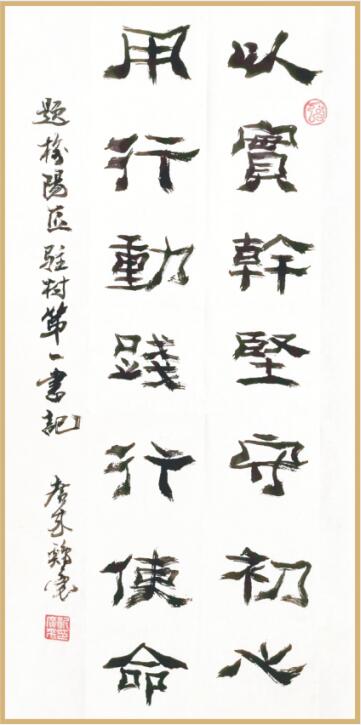 以實幹堅守初心
用行動踐行使命
題榆陽區駐村第一書記